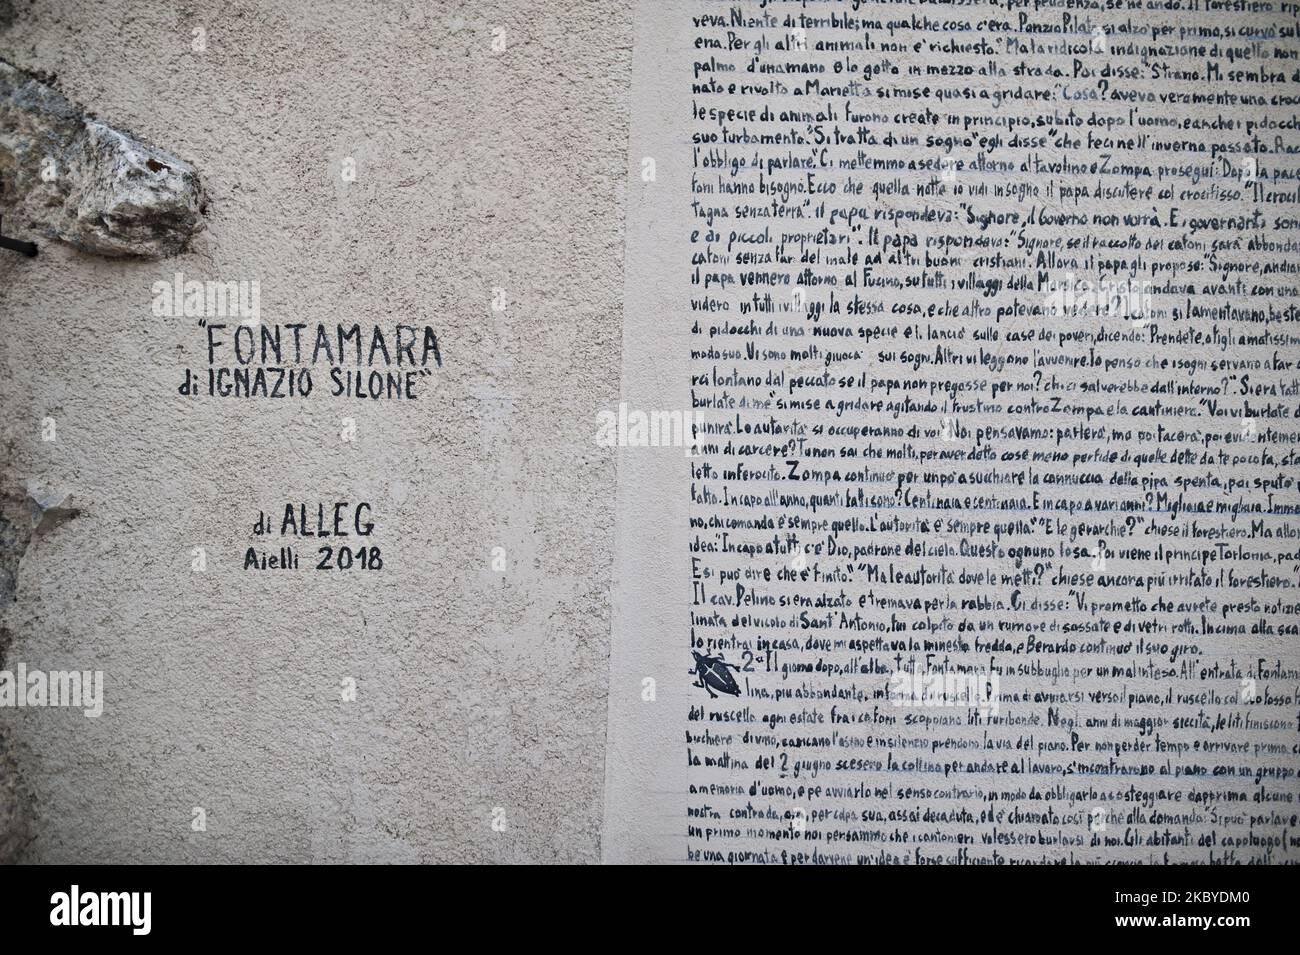 "FONTAMARA
di IGNAZIO SILONE"
di ALLEG
Aielli 2018
veva. Niente di terribile; ma qualche cosa c'era. Ponzio Pilato si alzò per primo, si curvò sul
ena. Per gli altri animali non è richiesto." Ma la ridicola indignazione di quello non
palmo d'una mano e lo gettò in mezzo alla strada. Poi disse: "Strano. Mi sembra d
nato e rivolto a Marietta si mise quasi a gridare: "Cosa? aveva veramente una croc
le specie di animali furono create in principio, subito dopo l'uomo, e anche i pidocch
suo turbamento. "Si tratta di un sogno" egli disse "che feci nell'inverno passato. Rac
l'obbligo di parlare." Ci mettemmo a sedere attorno al tavolino e Zompa proseguì: "Dopo la pace
foni hanno bisogno. Ecco che quella notte io vidi in sogno il papa discutere col crocifisso. "Il croci
tagna senza terra". il papa rispondeva: "Signore, il Governo non vorrà. E i governanti son
e di piccoli proprietari". Il papa rispondeva: "Signore, se il raccolto dei cafoni sarà abbonda
cafoni senza far del male ad altri buoni cristiani. Allora il papa gli propose: "Signore, andia
il papa vennero attorno al Fucino, su tutti i villaggi della Marsica. Cristo andava avanti con una
videro in tutti i villaggi la stessa cosa, e che altro potevano vedere? I cafoni si lamentavano, beste
di pidocchi di una nuova specie e li lanciò sulle case dei poveri, dicendo: "Prendete, o figli amatissim
modo suo. Vi sono molti giuoca sui sogni. Altri vi leggono l'avvenire. Io penso che i sogni servano a far d
rci lontano dal peccato se il papa non pregasse per noi? chi ci salverebbe dall'inferno?". Si era fatt
burlate di me" si mise a gridare agitando il frustino contro Zompa e la cantiniera. "Voi vi burlate d
punirà. Le autorità si occuperanno di voi" Noi pensavamo: parlerà, ma poi tacerà, poi evidentemen
anni di carcere? Tu non sai che molti, per aver detto cose meno perfide di quelle dette da te poco fa, sta
letto inferocito. Zompa continuò per un po' a succhiare la cannuccia della pipa spenta, poi sputò i
fatto. In capo all'anno, quanti fatti cono? Centinaia e centinaia. E in capo a vari anni? Migliaia e migliaia. Imme
no, chi comanda è sempre quello. L'autorità è sempre quella." "E le gerarchie?" chiese il forestiero. Ma allor
idea: "In capo a tutti c'è Dio, padrone del cielo. Questo ognuno lo sa. Poi viene il principe Torlonia, pad
E si può dire che è finito." "Ma le autorità dove le metti?" chiese ancora più irritato il forestiero."
Il cav. Pelino si era alzato e tremava per la rabbia. Ci disse: "Vi prometto che avrete presto notizie
linata del vicolo di Sant'Antonio, fui colpito da un rumore di sassate e di vetri rotti. In cima alla sca
Io rientrai in casa, dove mi aspettava la minestra fredda, e Berardo continuò il suo giro.
2 Il giorno dopo, all'alba, tutta Fontamara fu in subbuglio per un malinteso. All'entrata di Fontama
lina, più abbondante, in forma di ruscello. Prima di avviarsi verso il piano, il ruscello
del ruscello ogni estate fra i cafoni scoppiano liti furibonde. Negli anni di maggior siccità, le liti finiscono
bicchiere di vino, caricano l'asino e in silenzio prendono la via del piano. Per non perder tempo e arrivare prima
la mattina del 2 giugno scesero la collina per andare al lavoro, s'incontrarono al piano con un gruppo d
a memoria d'uomo, e per avviarlo nel senso contrario, in modo da obbligarlo a costeggiare dapprima alcune
nostra contrada, ora, per colpa sua, assai decaduta, ed è chiamato così perché alla domanda: "Si può parlare
un primo momento noi pensammo che i cantonieri volessero burlarsi di noi. Gli abitanti del capoluogo
be una giornata e per darvene un'idea è forse sufficiente ricordare la più